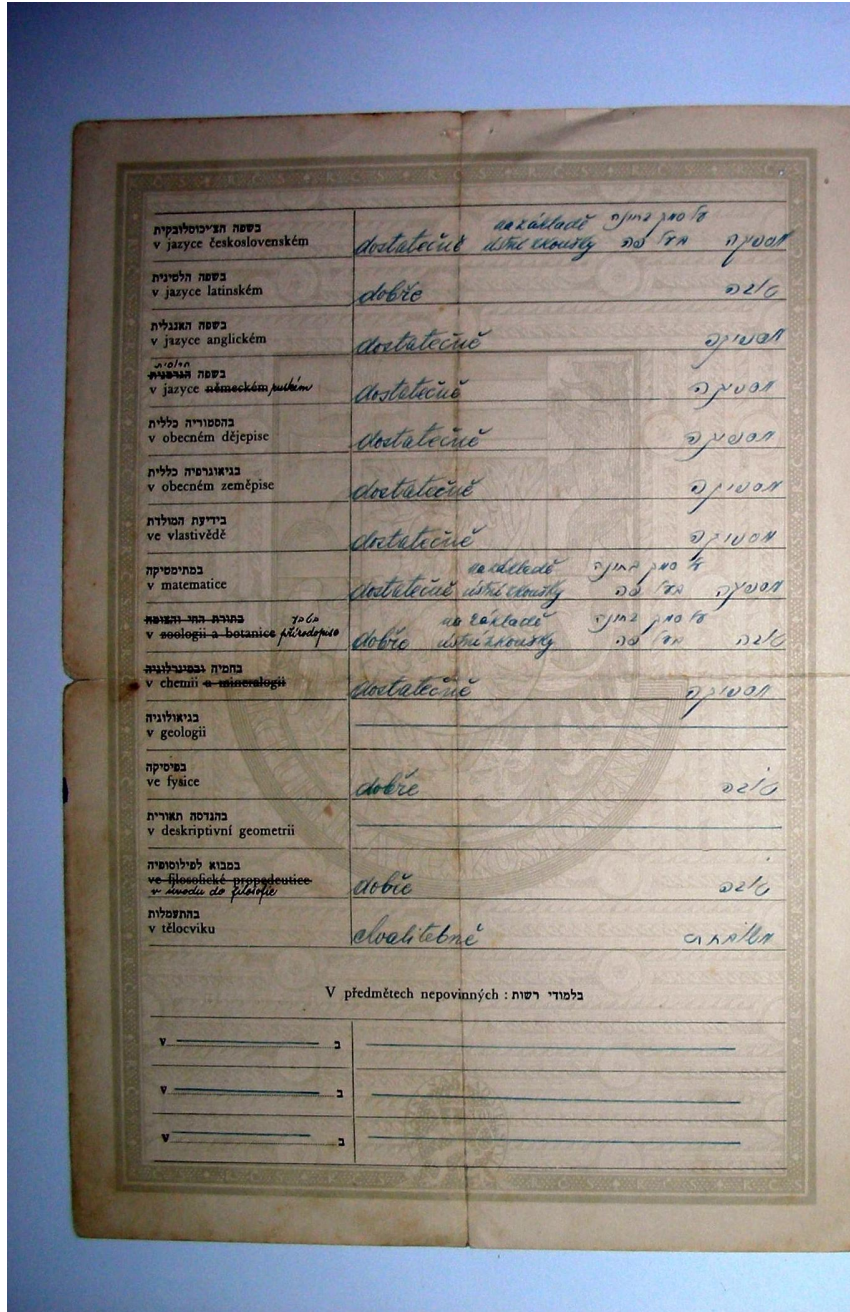 בשפה הצ'יכוסלובקית
v jazyce československém dostatečně na základě ústní zkoušky על סמך בחינה בעל פה מספיקה
בשפה הלטינית
v jazyce latinském dobře טובה
בשפה האנגלית
v jazyce anglickém dostatečně מספיקה
בשפה הגרמנית
v jazyce německém dostatečně מספיקה
בהסטוריה כללית
v obecném dějepise dostatečně מספיקה
בגיאוגרפיה כללית
v obecném zeměpise dostatečně מספיקה
בידיעת המולדת
ve vlastivědě dostatečně מספיקה
במתימטיקה
v matematice dostatečně na základě ústní zkoušky על סמך בחינה בעל פה מספיקה
בתורת החי והצומח בטבע
v zoologii a botanice přírodopise dobře na základě ústní zkoušky על סמך בחינה בעל פה טובה
בחמיה ובמינרלוגיה
v chemii a mineralogii dostatečně מספיקה
בגיאולוגיה
v geologii
בפיסיקה
ve fysice dobře טובה
בהנדסה תאורית
v deskriptivní geometrii
במבוא לפילוסופיה
ve filosofické propedeutice
v úvodu do filosofie dobře טובה
בהתעמלות
v tělocviku chvalitebně
V předmětech nepovinných : בלמודי רשות
v ב
v ב
v ב